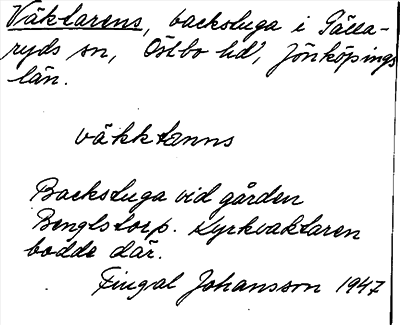 Väktarens, backstuga i Gälla-
ryds sn, Östbo hd, Jönköpings
län.
väkktanns
Backstuga vid gården
Bengtstorp. Kyrkvaktaren
bodde där.
Fingal Johansson 1947